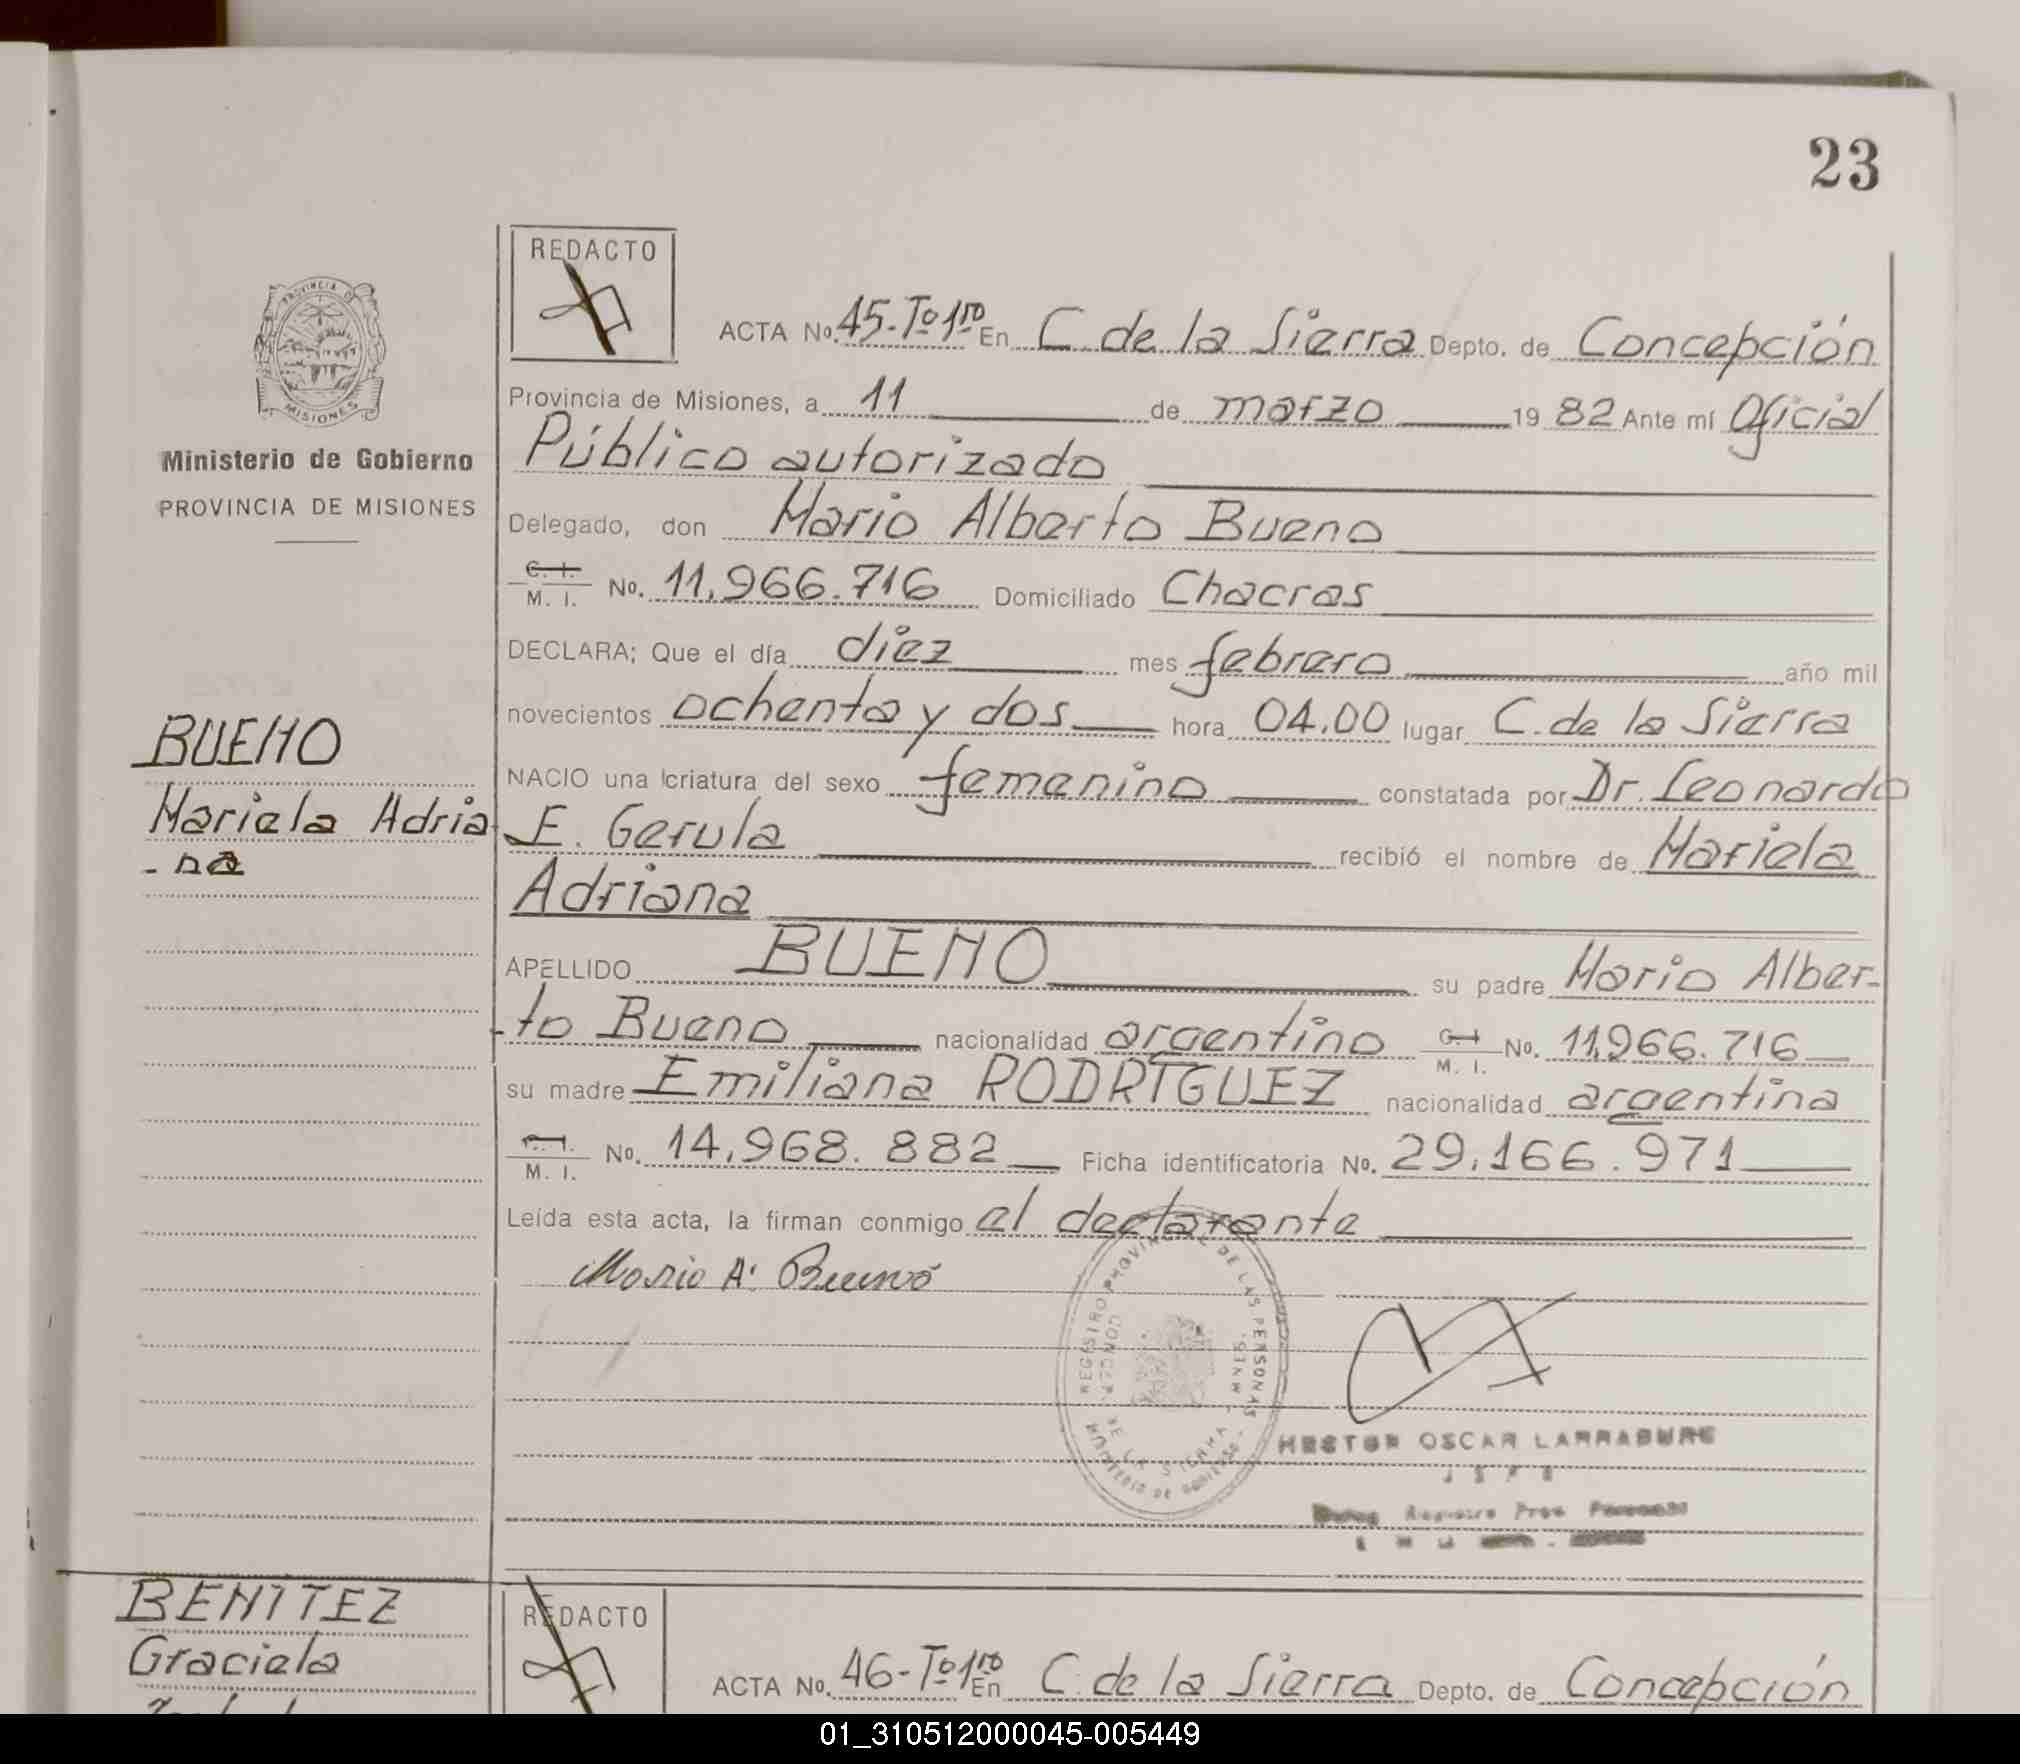 23
PROVINCIA DE
MISIONES
Ministerio de Gobierno
PROVINCIA DE MISIONES
BUENO
Mariela Adria
-na
REDACTO
ACTA No. 45-Tº1ro En C. de la Sierra Depto. de Concepción
Provincia de Misiones, a 11 de marzo 1982 Ante mí Oficial
Público autorizado
Delegado, don Mario Alberto Bueno
C. I. M. I. No. 11.966.716 Domiciliado Chacras
DECLARA; Que el día diez mes febrero año mil
novecientos ochenta y dos hora 04.00 lugar C. de la Sierra
NACIO una criatura del sexo femenino constatada por Dr. Leonardo
E. Gerula recibió el nombre de Mariela
Adriana
APELLIDO BUENO su padre Mario Alber-
-to Bueno nacionalidad argentino C. I. M. I. No. 11.966.716
su madre Emiliana RODRIGUEZ nacionalidad argentina
C. I. M. I. No. 14.968.882 Ficha identificatoria No. 29.166.971
Leída esta acta, la firman conmigo el declarante
Mario A. Bueno
REGISTRO PROVINCIAL DE LAS PERSONAS
MINISTERIO DE GOBIERNO
DE LA SIERRA - MNES.
HESTOR OSCAR LARRABURE
JEFE
BENITEZ
Graciela
REDACTO
ACTA No. 46-Tº1ro En C. de la Sierra Depto. de Concepción
01_310512000045-005449